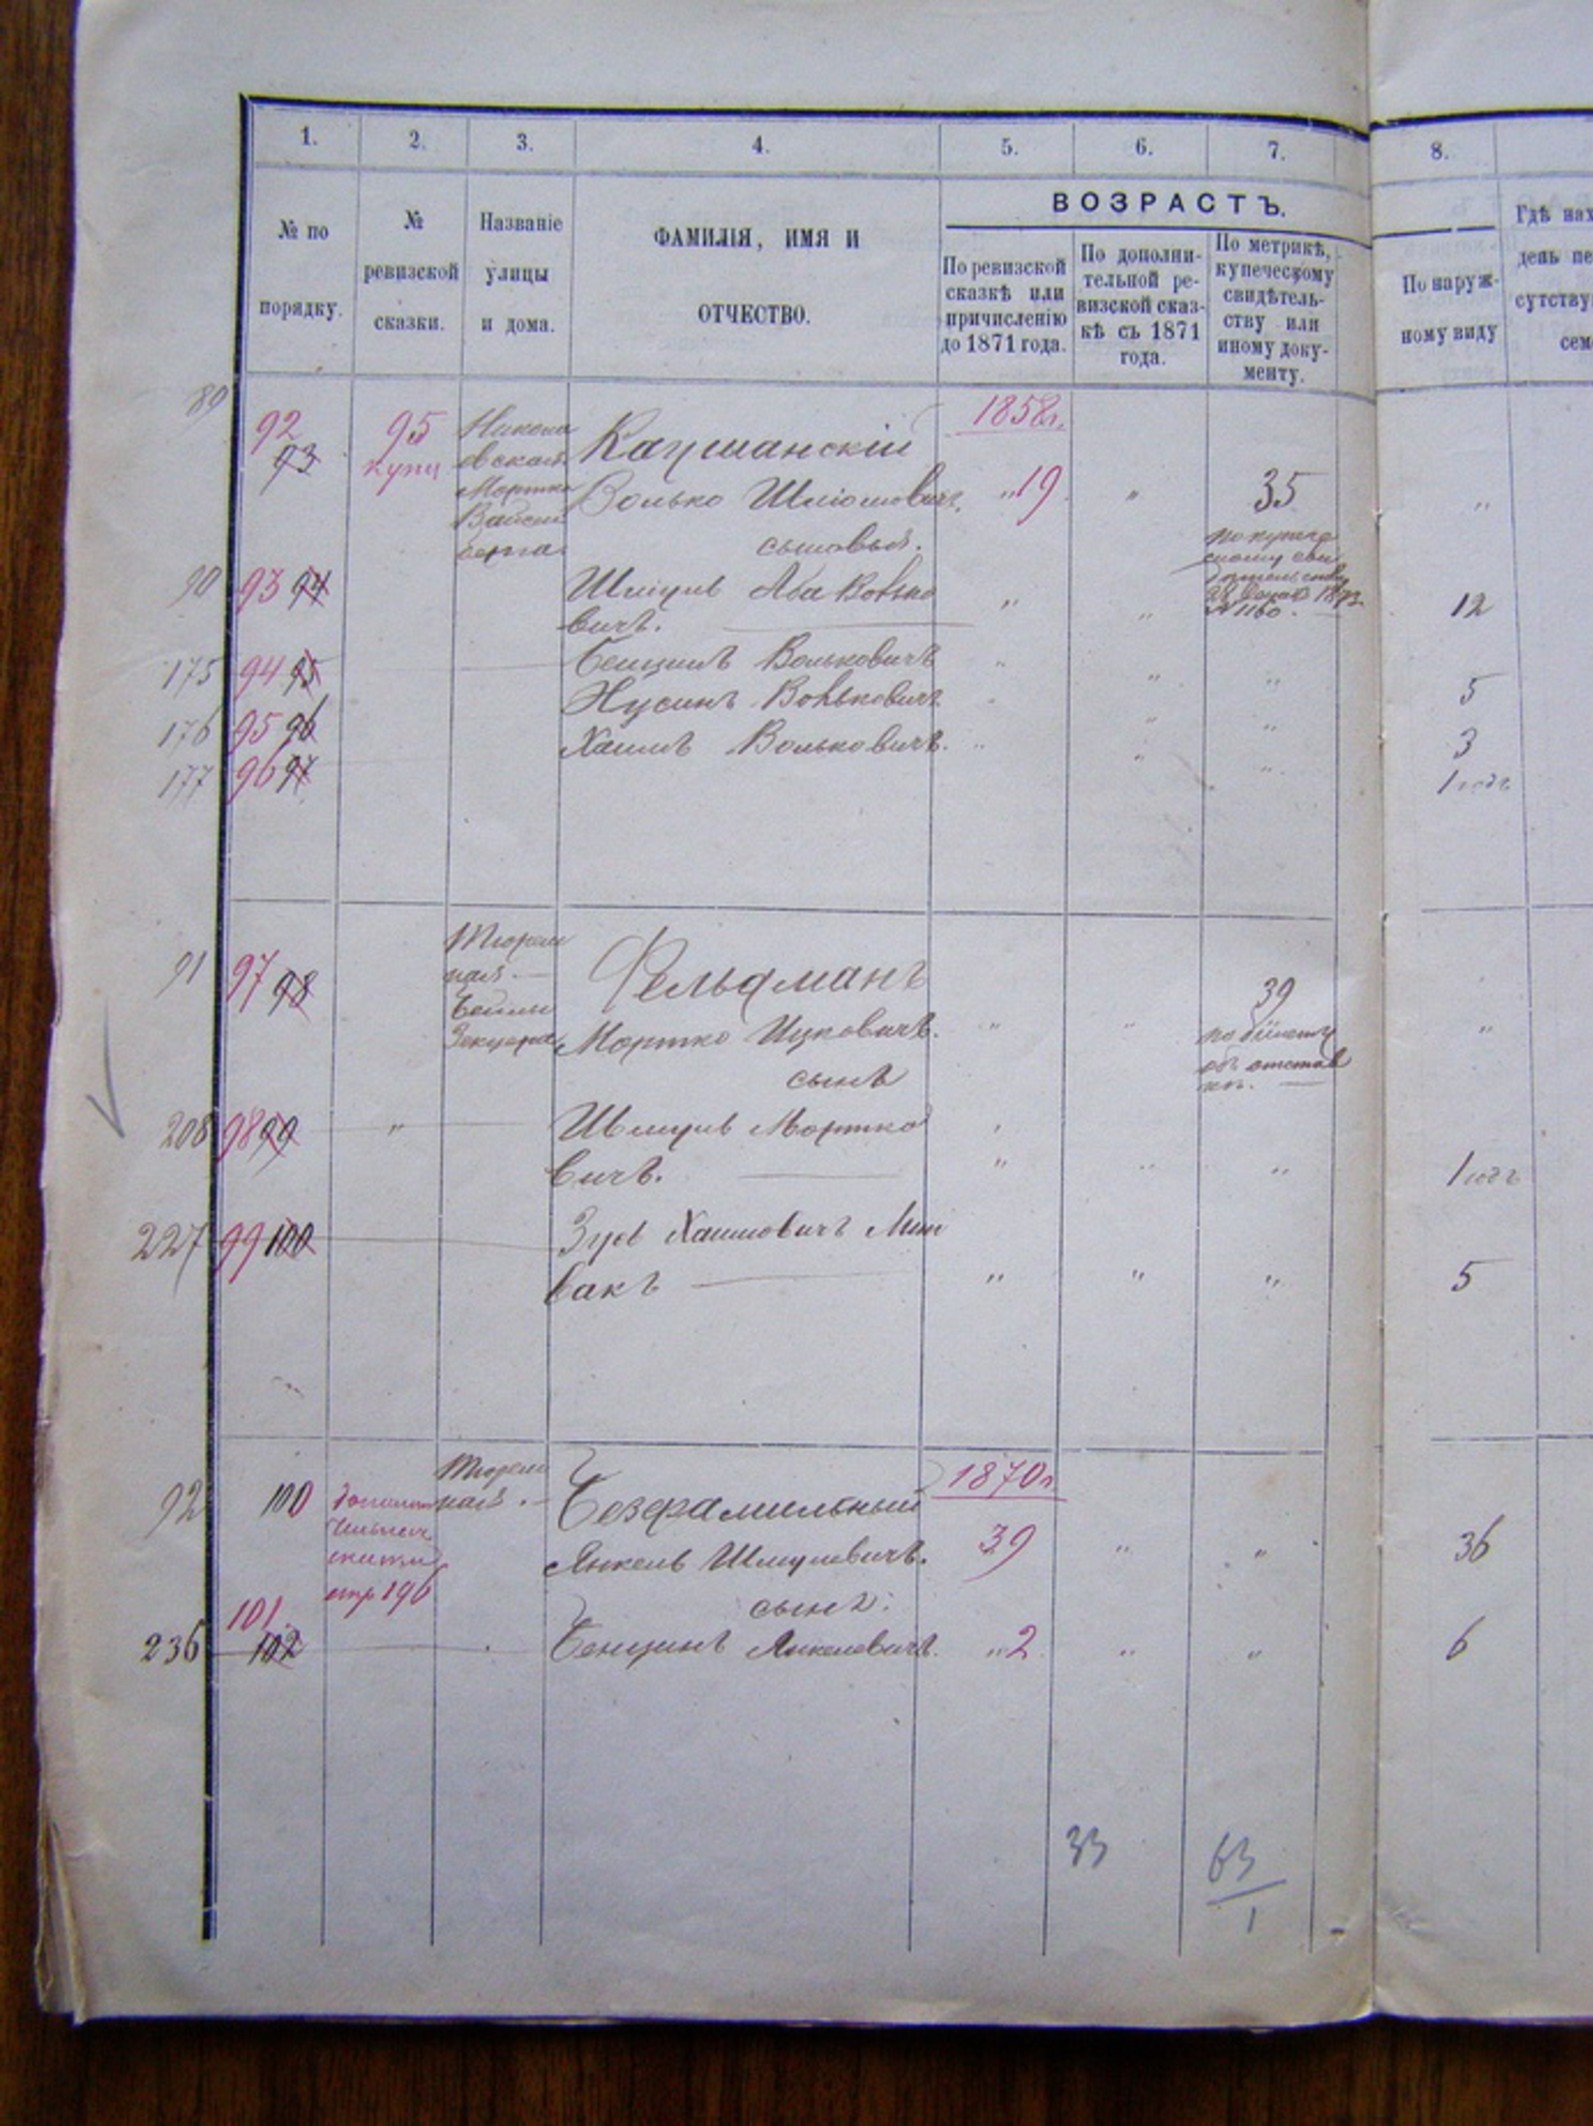 1. 2. 3. 4. 5. 6. 7. 8.
ВОЗРАСТЪ.
№ по
порядку.
№
ревизской
сказки.
Названіе
улицы
и дома.
ФАМИЛІЯ, ИМЯ И
ОТЧЕСТВО.
По ревизской
сказкѣ или
причисленію
до 1871 года.
По дополни-
тельной ре-
визской сказ-
кѣ съ 1871
года.
По метрикѣ,
купеческому
свидѣтель-
ству или
иному доку-
менту.
По наруж-
ному виду
Гдѣ нах
день пе
сутству
сем
89 92 93 95 купц
Никола
евская
Мортка
Каушанскій 1858г.
Волько Шліомовичъ. "19 " 35 "
сыновья.
по купече
скому сви
№ 1160.
90 93 94 Шмуль Аба Волько
вичъ. " " 12
175 94 95 Бенционъ Вольковичъ " " " 5
176 95 96 Нусинъ Вольковичъ. " " " 3
177 96 97 Хаимъ Вольковичъ. " " " 1 годъ
91 97 98
Тюрем
ная
Бейлы
Фельдманъ 39
Мортко Ицковичъ. " " "
по билету
объ отстав
кѣ.
сынъ
208 98 99 " Шмуль Мортко
вичъ. " " " 1 годъ
227 99 100 Зусь Хаимовичъ
" " " 5
92 100
дополни
стр 196
Тюрем
ная.
Безфамильный 1870г.
Янкель Шмулевичъ. 39 " " 36
сынъ:
236 101 102 Бенционъ Янкелевичъ. "2 " " 6
33 63
1